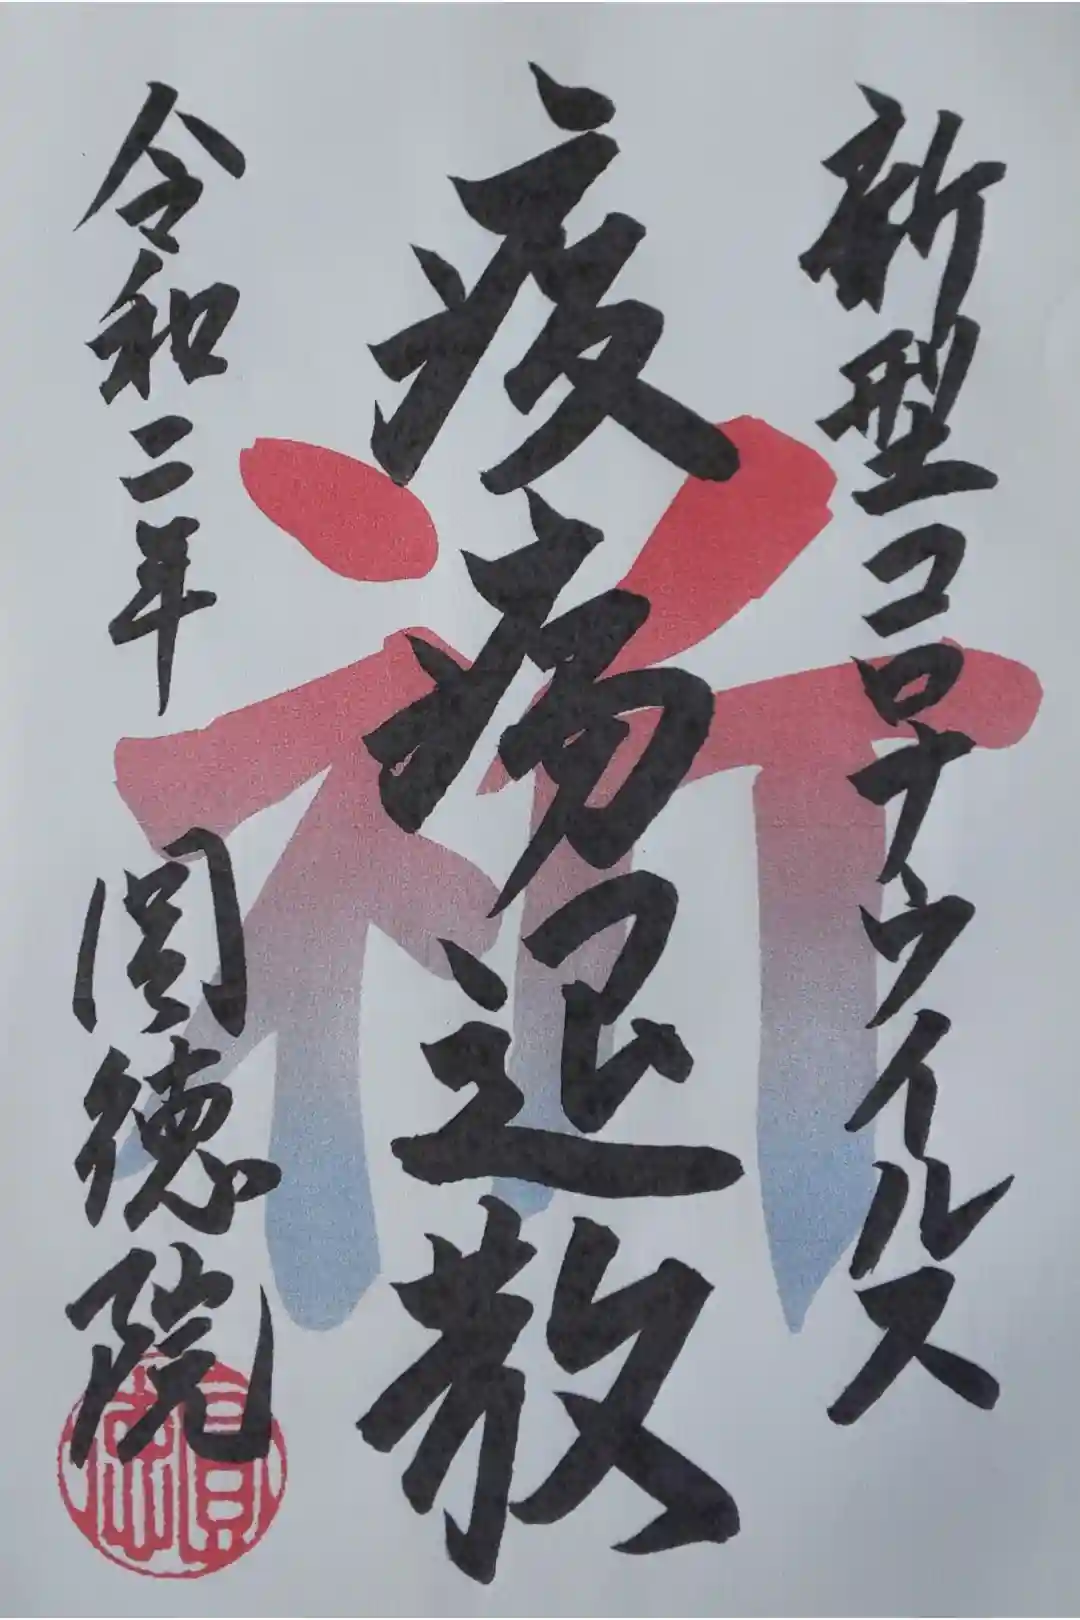 新型コロナウイルス
疫病退散
祈
令和二年 関徳院